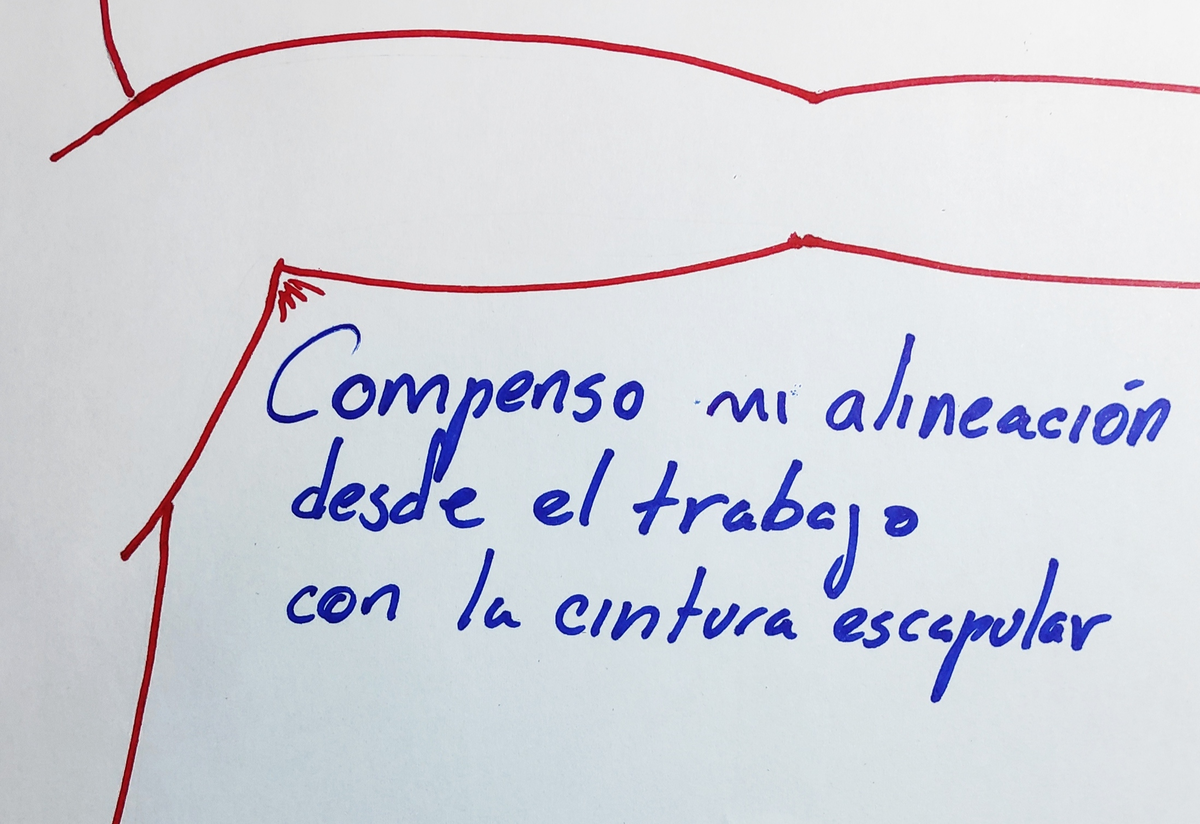 Compenso mi alineación
desde el trabajo
con la cintura escapular